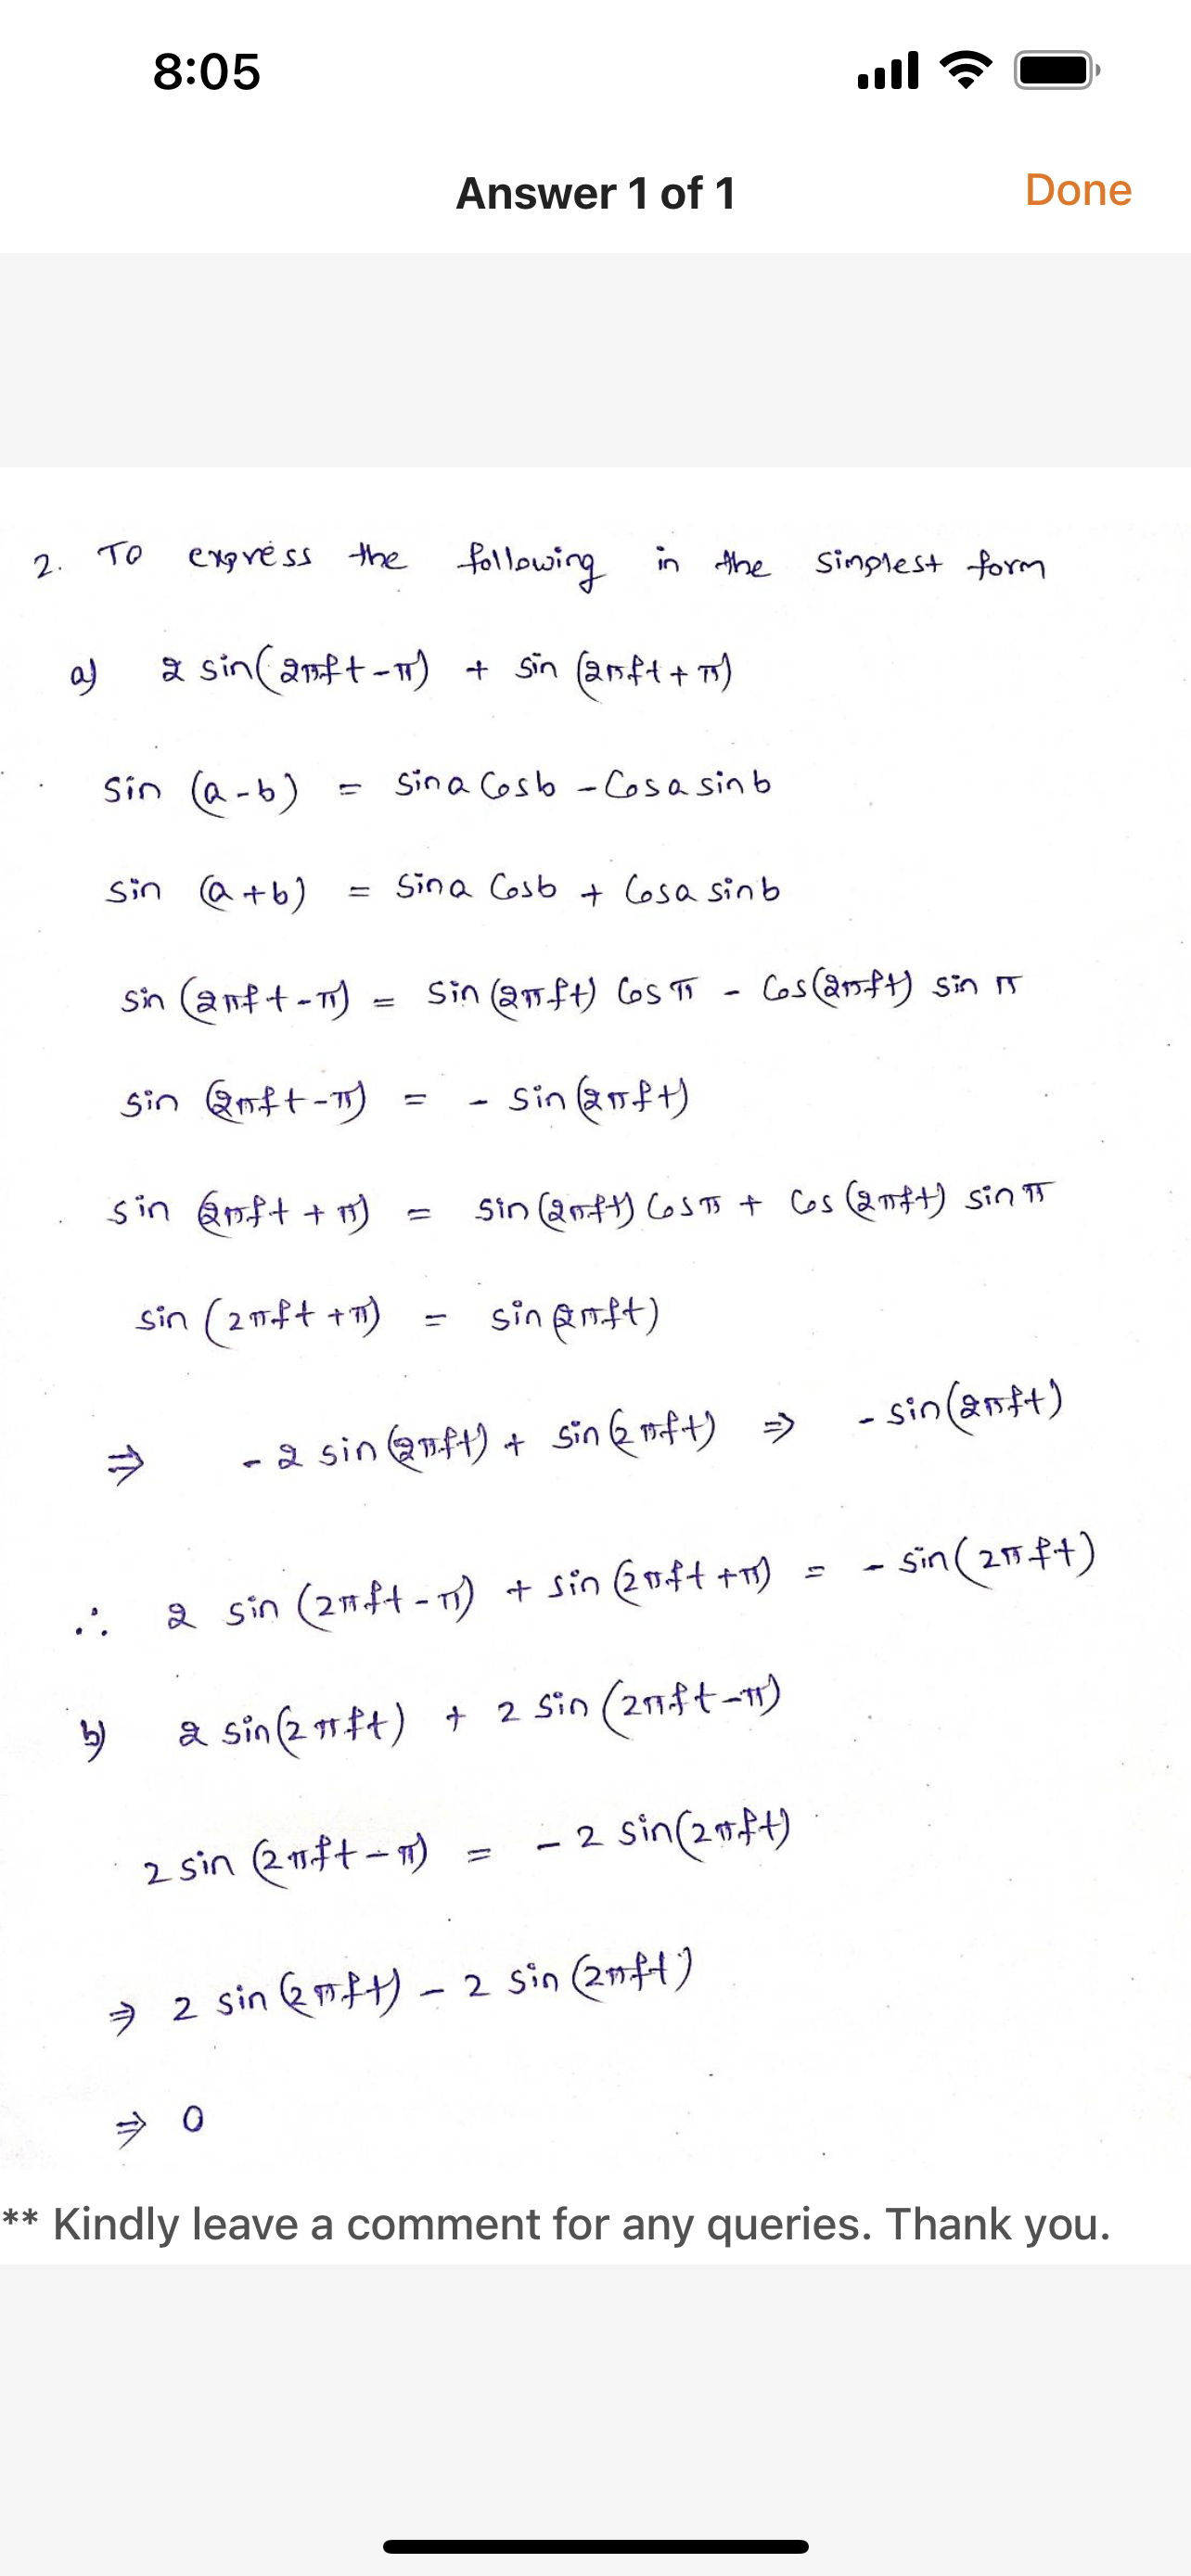 8:05
Answer 1 of 1
Done
2. To express the following in the simplest form
a) 2 sin(2πft-π) + sin (2πft+π)
sin (a-b) = sina Cosb - Cosa sinb
sin (a+b) = sina Cosb + Cosa sinb
sin (2πft-π) = sin (2πft) Cos π - Cos(2πft) sin π
sin (2πft-π) = - sin(2πft)
sin (2πft+π) = sin(2πft) Cosπ + Cos (2πft) sin π
sin (2πft+π) = sin(2πft)
⇒ -2 sin(2πft) + sin(2πft) ⇒ - sin(2πft)
∴ 2 sin (2πft-π) + sin (2πft+π) = - sin(2πft)
b) 2 sin(2πft) + 2 sin (2πft-π)
2 sin (2πft-π) = - 2 sin(2πft)
⇒ 2 sin (2πft) - 2 sin (2πft)
⇒ 0
** Kindly leave a comment for any queries. Thank you.